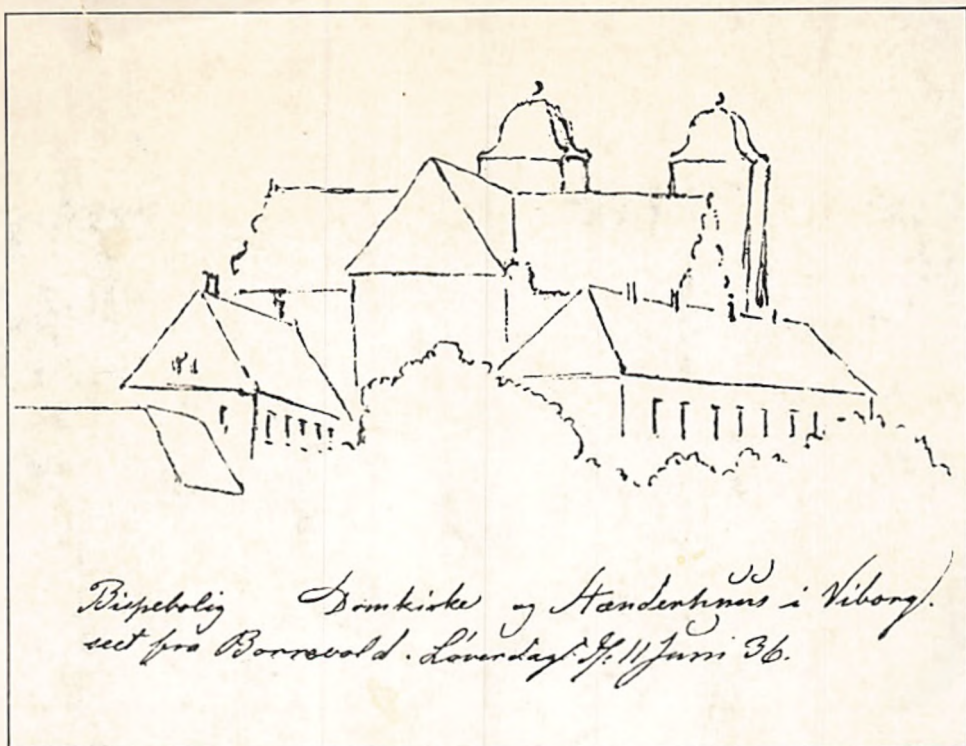 Bispebolig Domkirke og Stænderhuus i Viborg.
seet fra Borrevold. Løverdag d. 11 Juni 36.